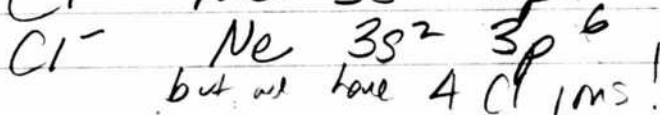 Cl⁻ Ne 3s² 3p⁶
but we have 4 Cl ions!